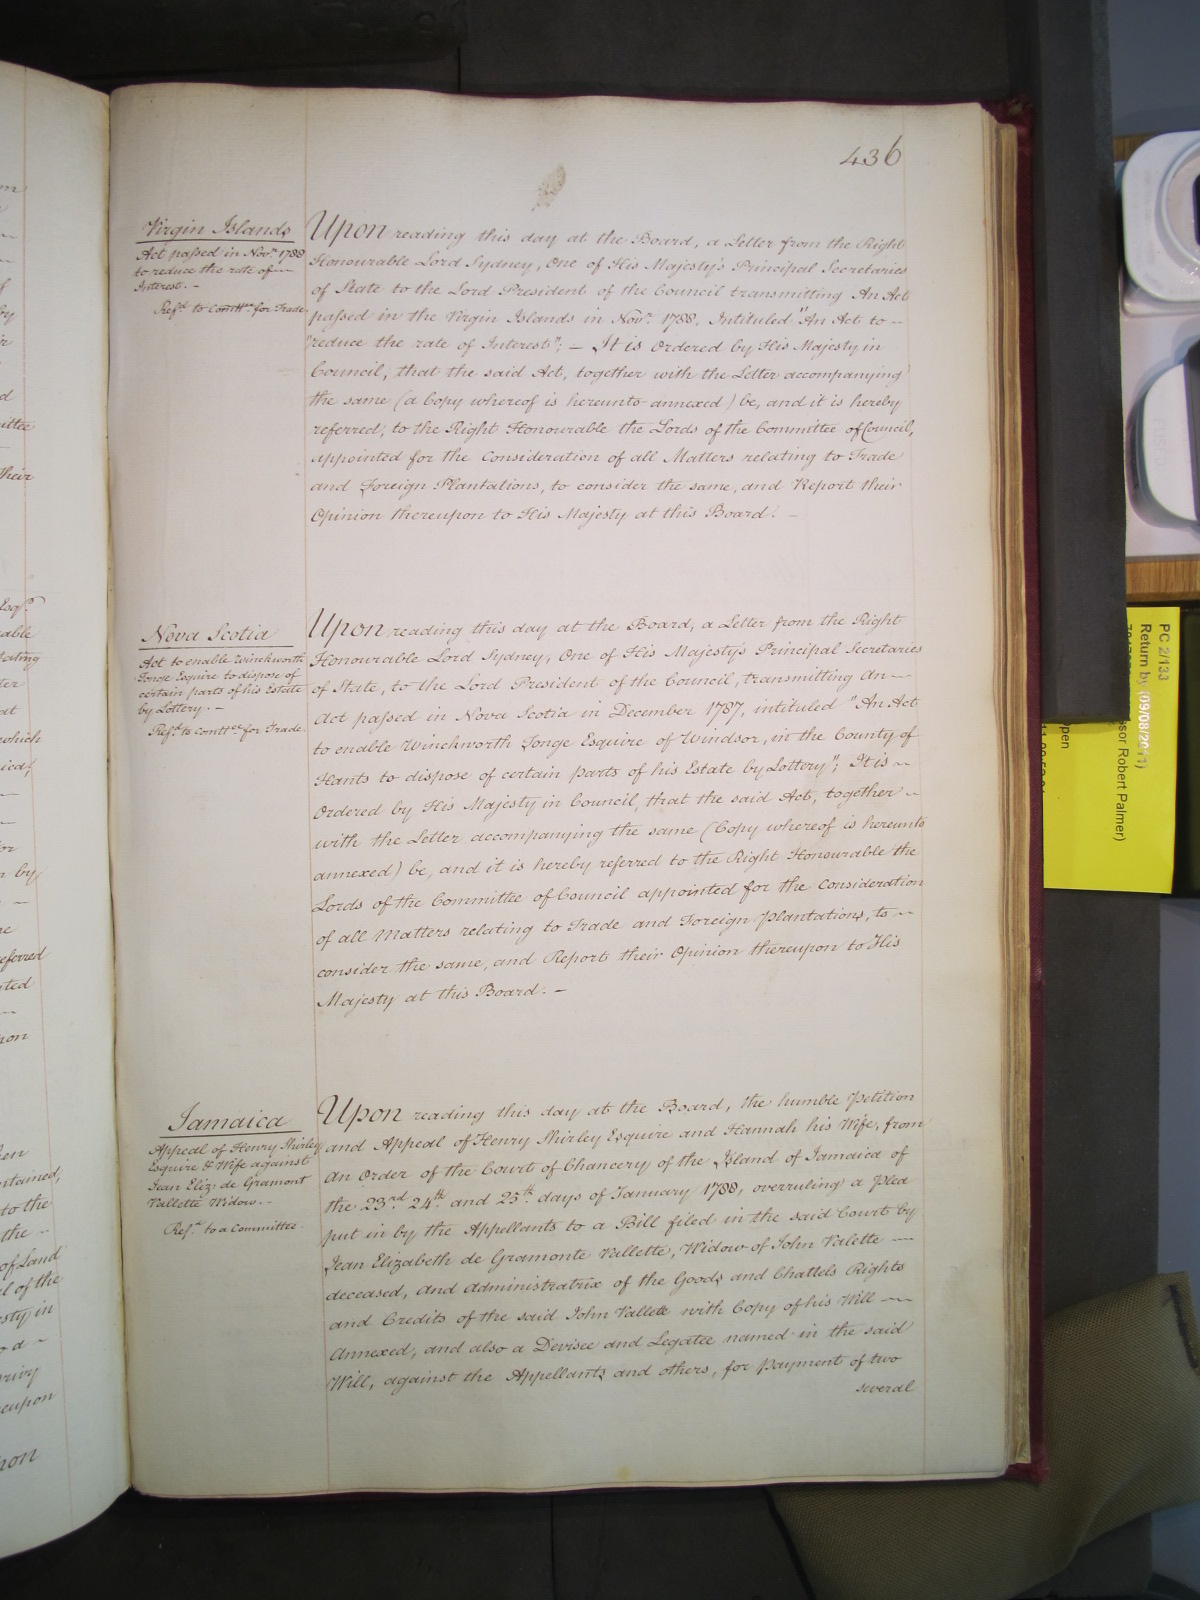 436
Virgin Islands
Act passed in Nov.r 1788
to reduce the rate of
Interest. –
Ref.d to Comtt.ee for Trade.
Upon reading this day at the Board, a Letter from the Right
Honourable Lord Sydney, One of His Majesty's Principal Secretaries
of State to the Lord President of the Council transmitting An Act
passed in the Virgin Islands in Nov.r 1788, Intituled "An Act to –
"reduce the rate of Interest"; – It is Ordered by His Majesty in
Council, that the said Act, together with the Letter accompanying
the same (a Copy whereof is hereunto annexed) be, and it is hereby
referred, to the Right Honourable the Lords of the Committee of Council,
appointed for the Consideration of all Matters relating to Trade
and Foreign Plantations, to consider the same, and Report their
Opinion thereupon to His Majesty at this Board. –
Nova Scotia
Act to enable Winckworth
Tonge Esquire to dispose of
certain parts of his Estate
by Lottery. –
Ref.d to Comtt.ee for Trade.
Upon reading this day at the Board, a Letter from the Right
Honourable Lord Sydney, One of His Majesty's Principal Secretaries
of State, to the Lord President of the Council, transmitting An –
Act passed in Nova Scotia in December 1787, intituled "An Act
to enable Winckworth Tonge Esquire of Windsor, in the County of
Hants to dispose of certain parts of his Estate by Lottery"; It is –
Ordered by His Majesty in Council, that the said Act, together –
with the Letter accompanying the same (Copy whereof is hereunto
annexed) be, and it is hereby referred to the Right Honourable the
Lords of the Committee of Council appointed for the Consideration
of all Matters relating to Trade and Foreign Plantations, to –
consider the same, and Report their Opinion thereupon to His
Majesty at this Board. –
Jamaica
Appeal of Henry Shirley
Esquire & Wife against
Jean Eliz: de Gramont
Vallette Widow. –
Ref.d to a Committee.
Upon reading this day at the Board, the humble Petition
and Appeal of Henry Shirley Esquire and Hannah his Wife, from
an Order of the Court of Chancery of the Island of Jamaica of
the 23rd 24th and 25th days of January 1788, overruling a Plea
put in by the Appellants to a Bill filed in the said Court by
Jean Elizabeth de Gramonte Vallette, Widow of John Valette –
deceased, and Administratrix of the Goods and Chattels Rights
and Credits of the said John Vallette with Copy of his Will –
Annexed, and also a Devisee and Legatee named in the said
Will, against the Appellants and others, for Payment of two
several
PC 2/133
Return by (09/08/2011)
ssor Robert Palmer)